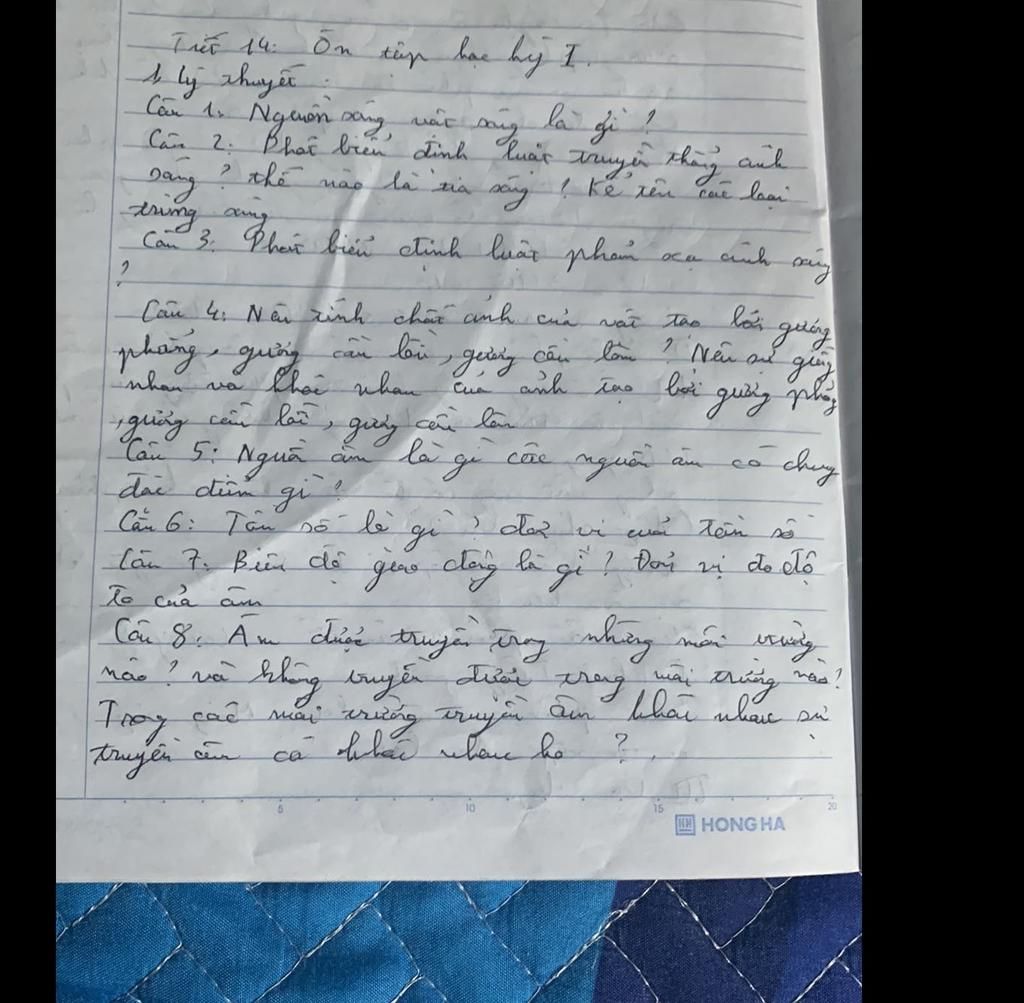 Tiết 14: Ôn tập học kỳ I.
1, Lý thuyết :
Câu 1: Nguồn sáng vật sáng là gì ?
Câu 2: Phát biểu định luật truyền thẳng ánh
sáng ? thế nào là tia sáng ? Kể tên các loại
trùng sáng
Câu 3: Phát biểu định luật phản xạ ánh sáng
?
Câu 4: Nêu tính chất ảnh của vật tạo bởi gương
phẳng, gương cầu lồi, gương cầu lõm ? Nêu sự giống
nhau và khác nhau của ảnh tạo bởi gương phẳng
, gương cầu lồi, gương cầu lõm
Câu 5: Nguồn âm là gì các nguồn âm có chung
đặc điểm gì ?
Câu 6: Tần số là gì ? đơn vị của tần số
Câu 7: Biên độ giao động là gì ? Đơn vị đo độ
to của âm
Câu 8: Âm được truyền trong những môi trường
nào ? và không truyền được trong môi trường nào ?
Trong các môi trường truyền âm khác nhau sự
truyền âm có khác nhau ko ?.
5 10 15 20
HH HONG HA